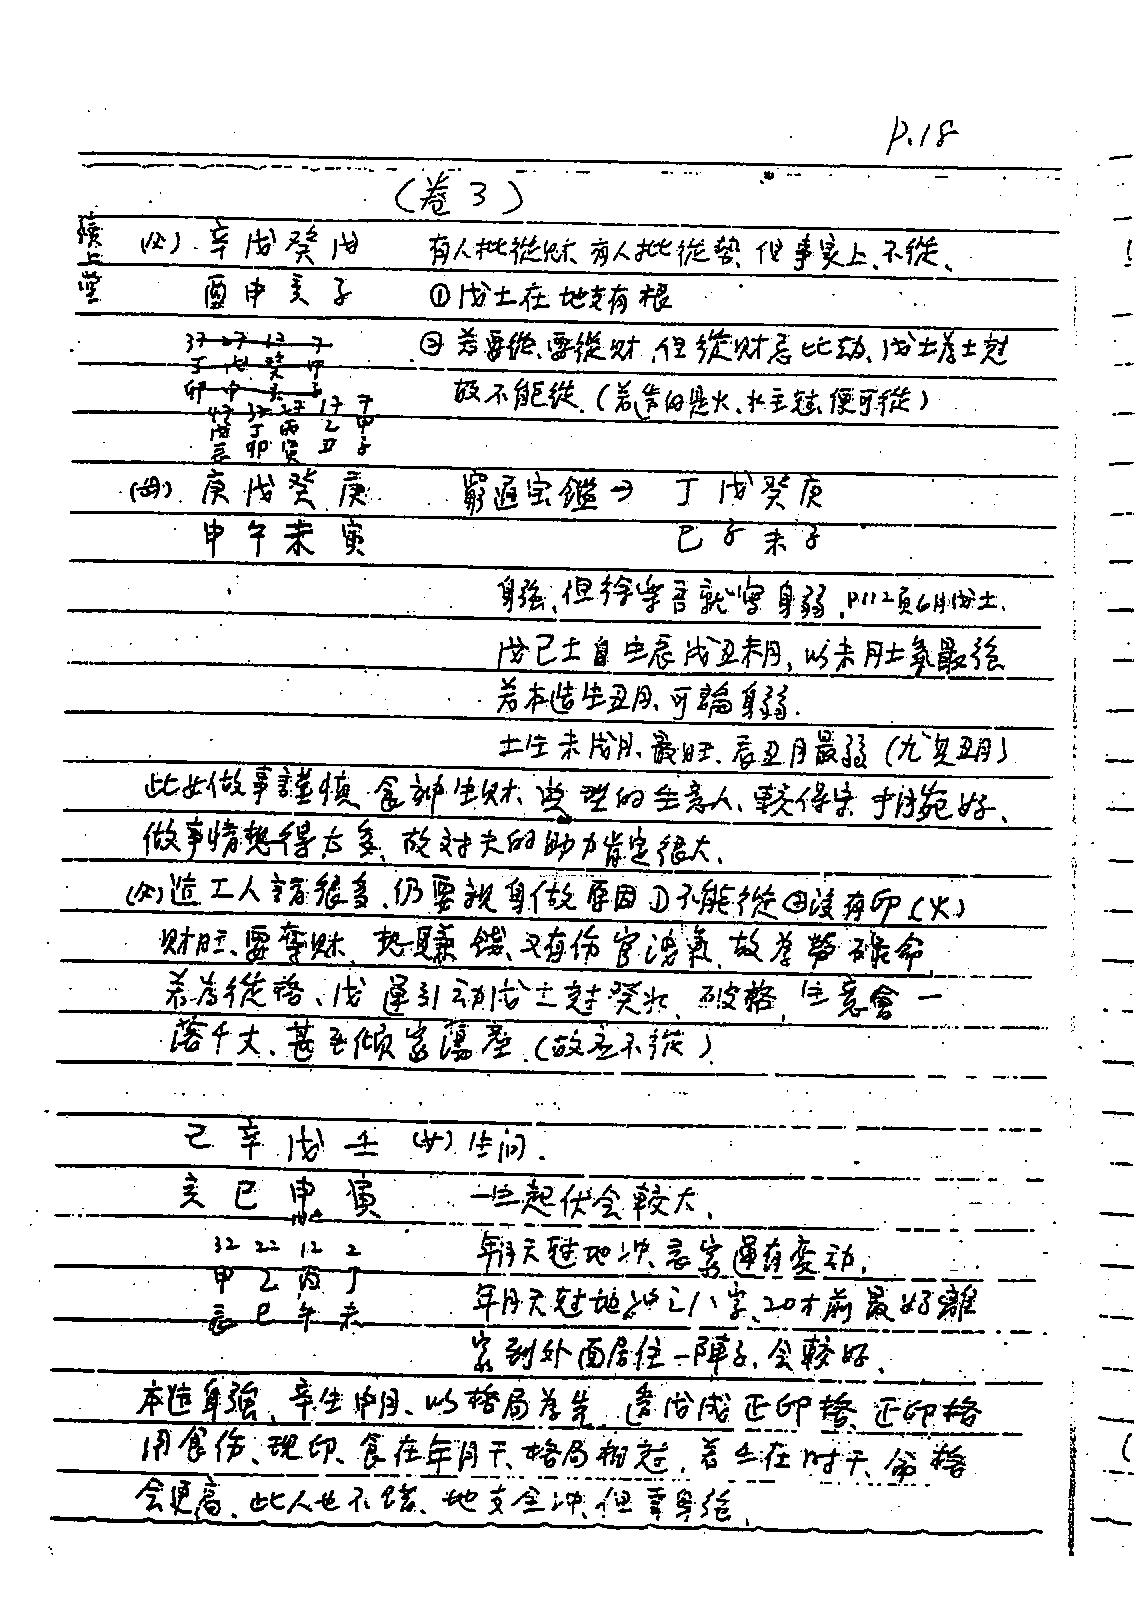 P.18
(卷3)
續上堂
(女) 辛戊癸戊 有人批從財、有人批從勢、但事實上、不從、
酉申亥子 ①戊土在地支有根
37 27 17 7 ②若要從、要從財、但從財忌比劫、戊土為土尅
丁戊癸甲
卯申亥子 故不能從、(若造的是火、水尅便可從)
47 37 27 17 7
戊丁丙乙甲
辰卯寅丑子
庚戊癸庚 窮通宝鑑→ 丁戊癸庚
申午未寅 巳子未子
身強、但徐樂吾就當身弱、P112頁6月戊土、
戊己土自生辰戊丑未月、以未月土氣最強
若本造生丑月、可論身弱.
土生未戊月、最旺、辰丑月最弱(尤其丑月)
此女做事謹慎、食神生財、 理的生意人、
做事情想得太多、故对夫的助力肯定很大、
(女)造工人請很多、仍要親身做原因①不能從②沒有印(火)
財旺、要奪財、想賺錢、又有伤官洩氣、故為勞碌命、
若為從格、戊運引动戊土尅癸水、破格、生意會一
落千丈、甚至傾家蕩產、(故定不從)
己辛戊壬 (女) 生問.
亥巳申寅 一生起伏会較大、
32 22 12 2 年月天尅地冲、表家運有变动.
甲乙丙丁 年月天尅地冲之八字、20才前最好離
辰巳午未 家到外面居住一陣子、会較好、
本造身強、辛生申月、以格局為先、透戊成正印格、正印格
用食伤、現印、食在年月干、格局相尅、若壬在时干、命格
会更高、此人也不錯、地支全冲、但重身強、